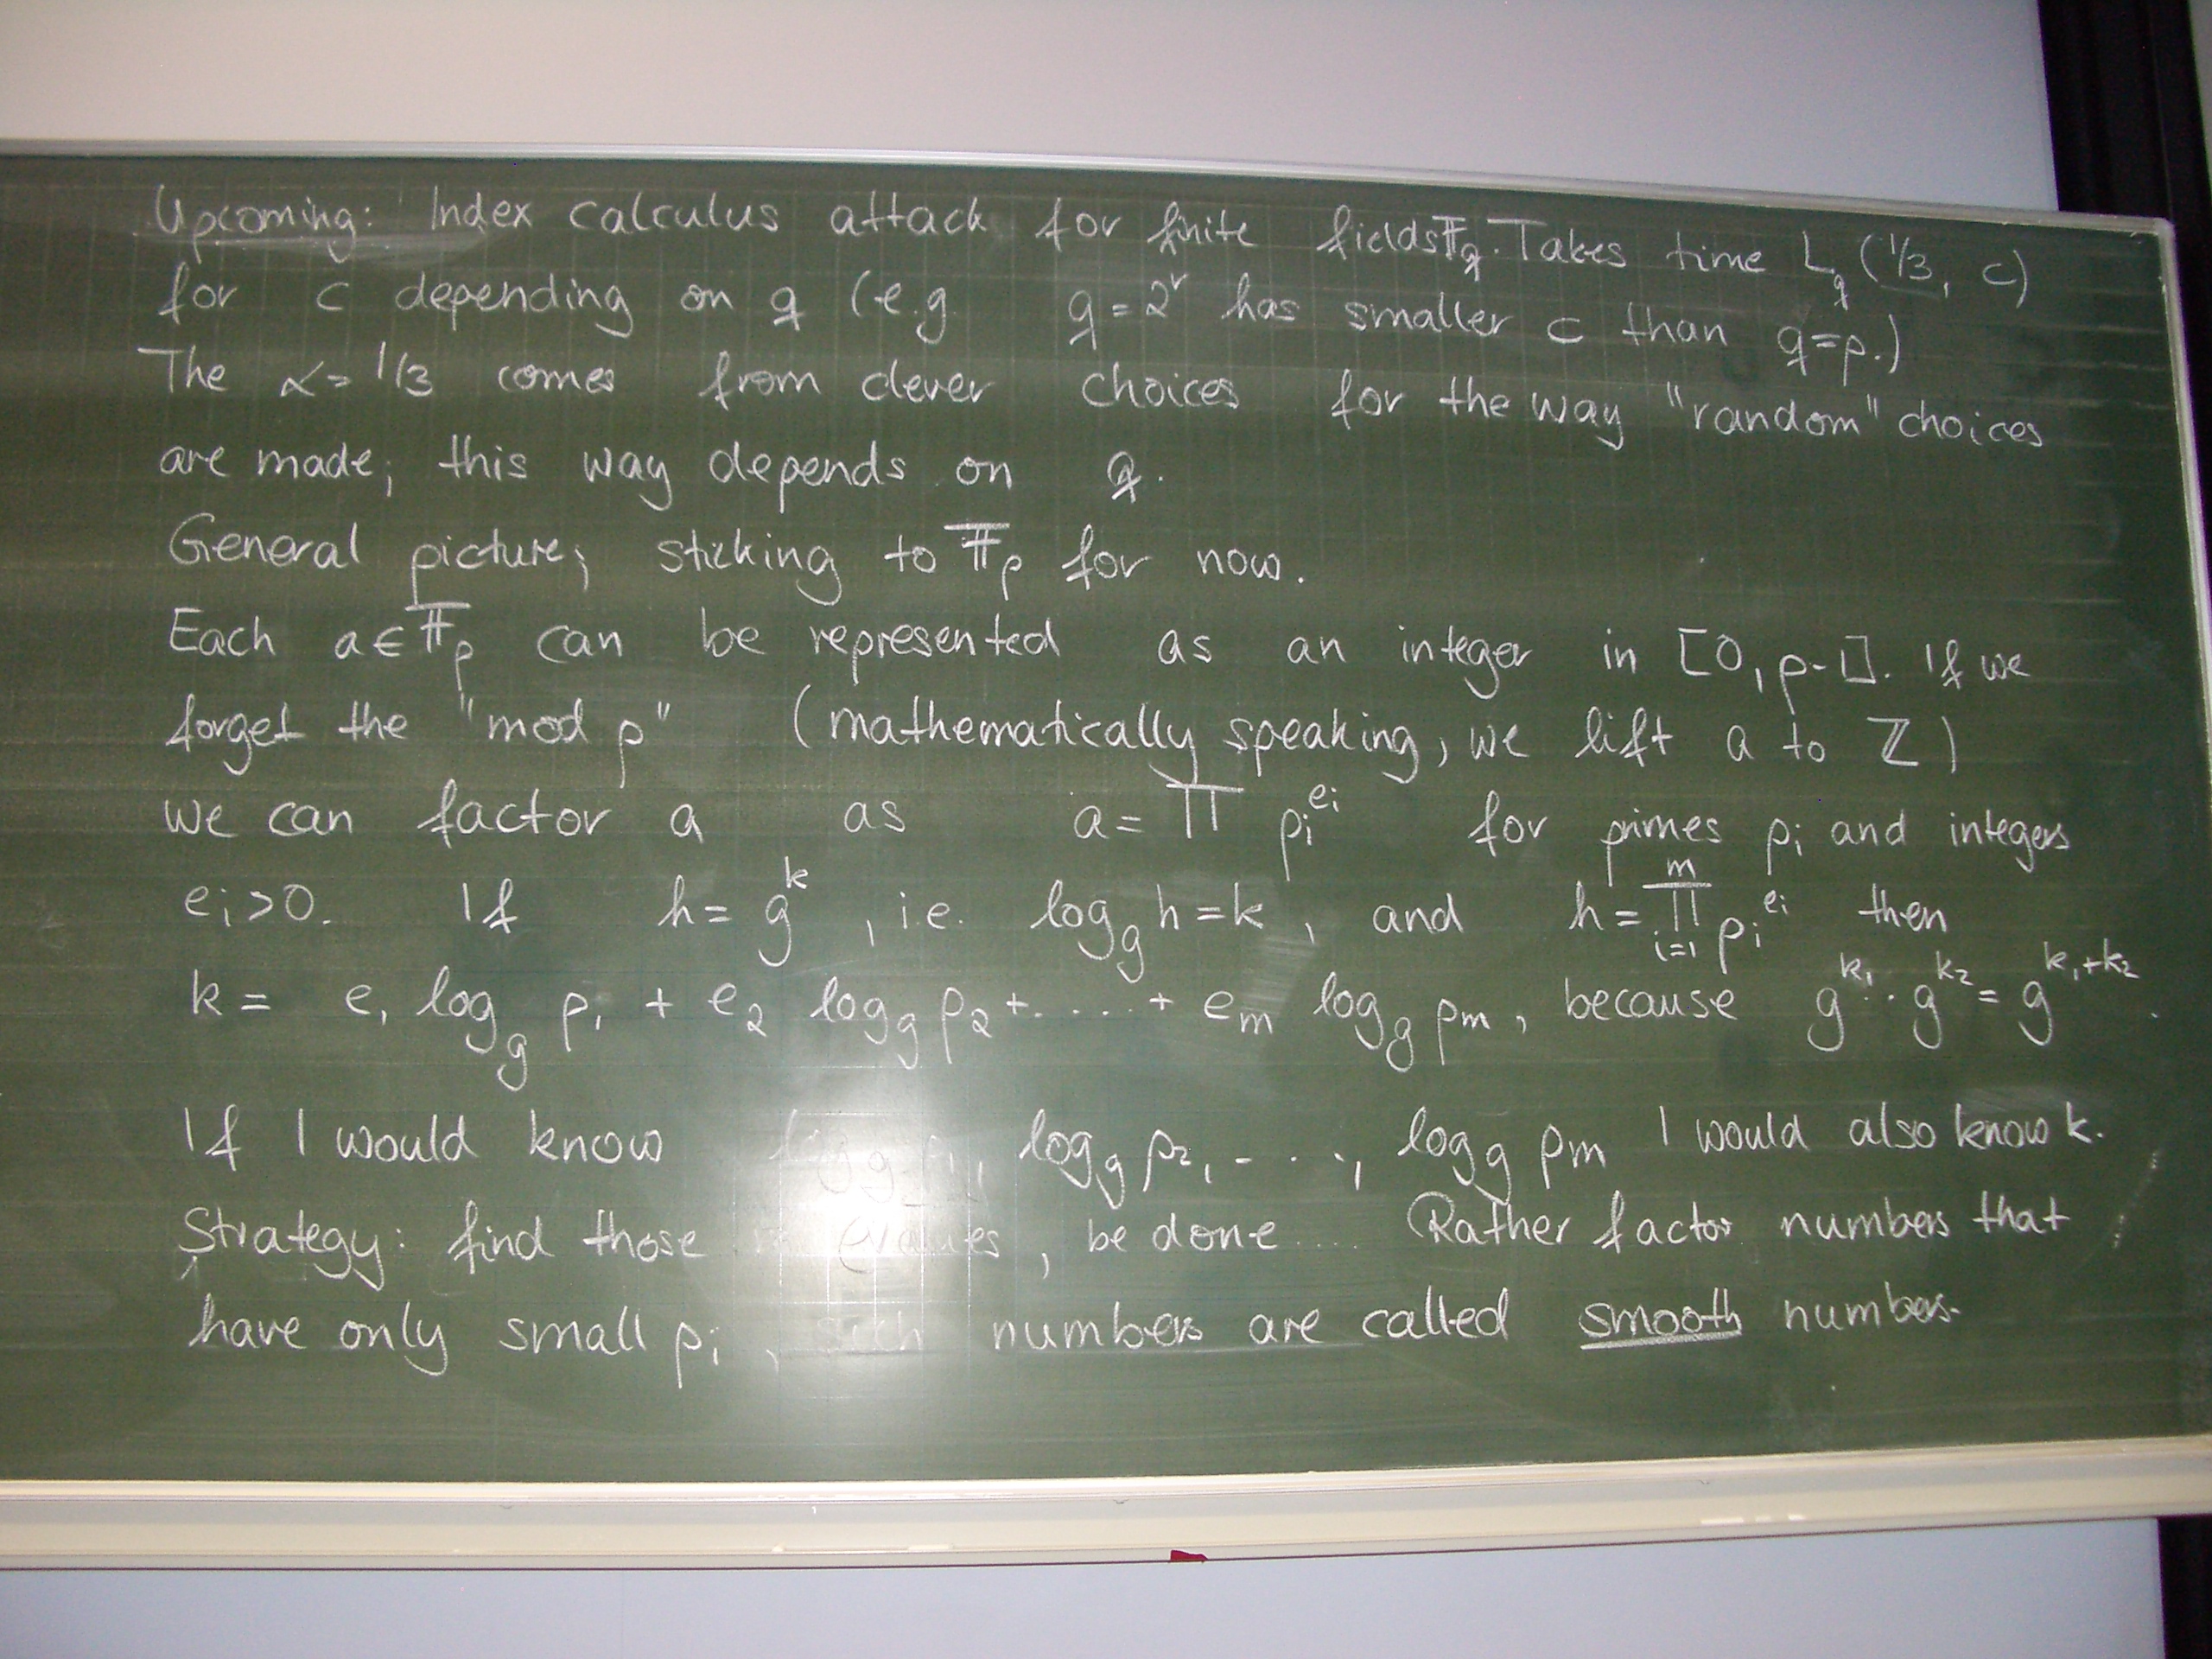 Upcoming: Index calculus attack for finite fields 𝔽_q. Takes time L_q (1/3, c)
for c depending on q (e.g. q=2^r has smaller c than q=p.)
The α=1/3 comes from clever choices for the way "random" choices
are made; this way depends on q.
General picture; sticking to 𝔽_p for now.
Each a∈𝔽_p can be represented as an integer in [0,p-1]. If we
forget the "mod p" (mathematically speaking, we lift a to ℤ)
we can factor a as a=∏ p_i^{e_i} for primes p_i and integers
e_i>0. If h=g^k, i.e. log_g h=k, and h=∏_{i=1}^m p_i^{e_i} then
k= e_1 log_g p_1 + e_2 log_g p_2+....+ e_m log_g p_m, because g^{k_1}·g^{k_2}=g^{k_1+k_2}.
If I would know log_g p_1, log_g p_2, ..., log_g p_m I would also know k.
Strategy: find those values, be done.... Rather factor numbers that
have only small p_i, such numbers are called smooth numbers.